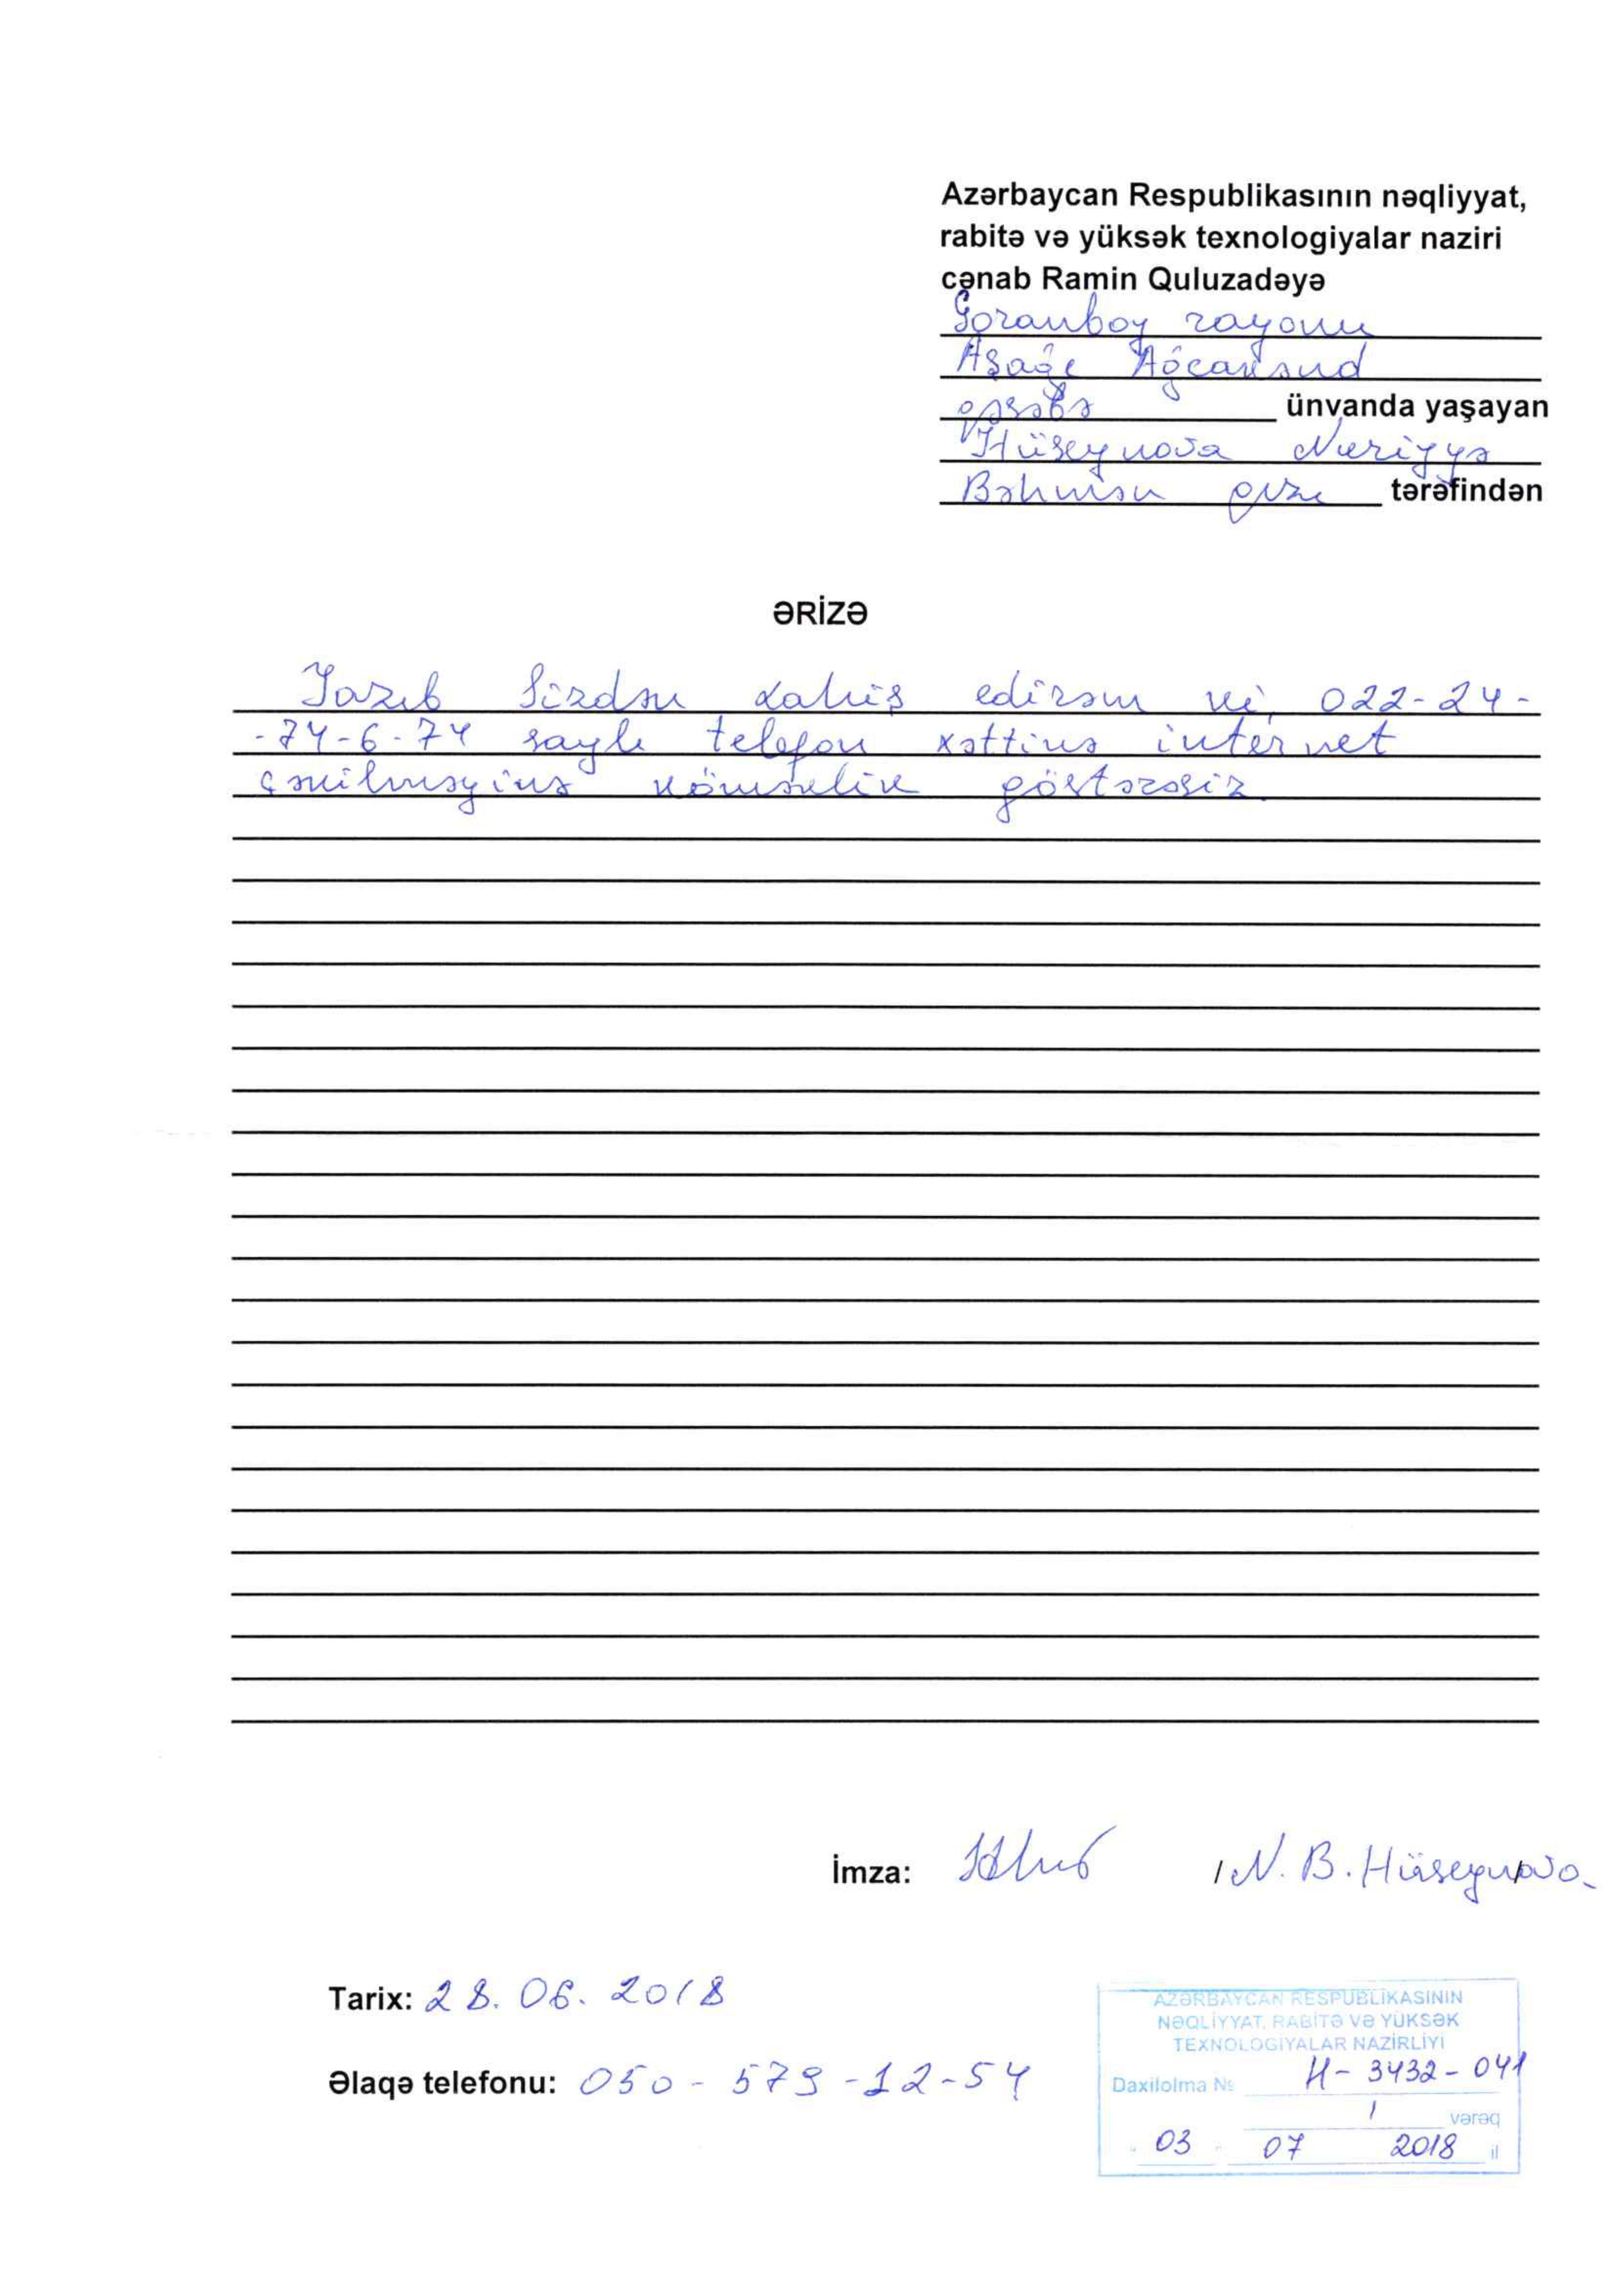 Azərbaycan Respublikasının nəqliyyat,
rabitə və yüksək texnologiyalar naziri
cənab Ramin Quluzadəyə
Goranboy rayonu
Aşağı Ağcakənd
qəsəbə ünvanda yaşayan
Hüseynova Nuriyyə
Bəhmən qızı tərəfindən
ƏRİZƏ
Yazıb Sizdən xahiş edirəm ki, 022-24-
-74-6-74 saylı telefon xəttinə internet
çəkilməyinə köməklik göstərəsiz
İmza: / N. B. Hüseynova /
Tarix: 28. 06. 2018
Əlaqə telefonu: 050 - 579 - 12 - 54
AZƏRBAYCAN RESPUBLİKASININ
NƏQLİYYAT, RABİTƏ VƏ YÜKSƏK
TEXNOLOGİYALAR NAZİRLİYİ
Daxilolma № H- 3432 - 041
1 vərəq
03 07 2018 il